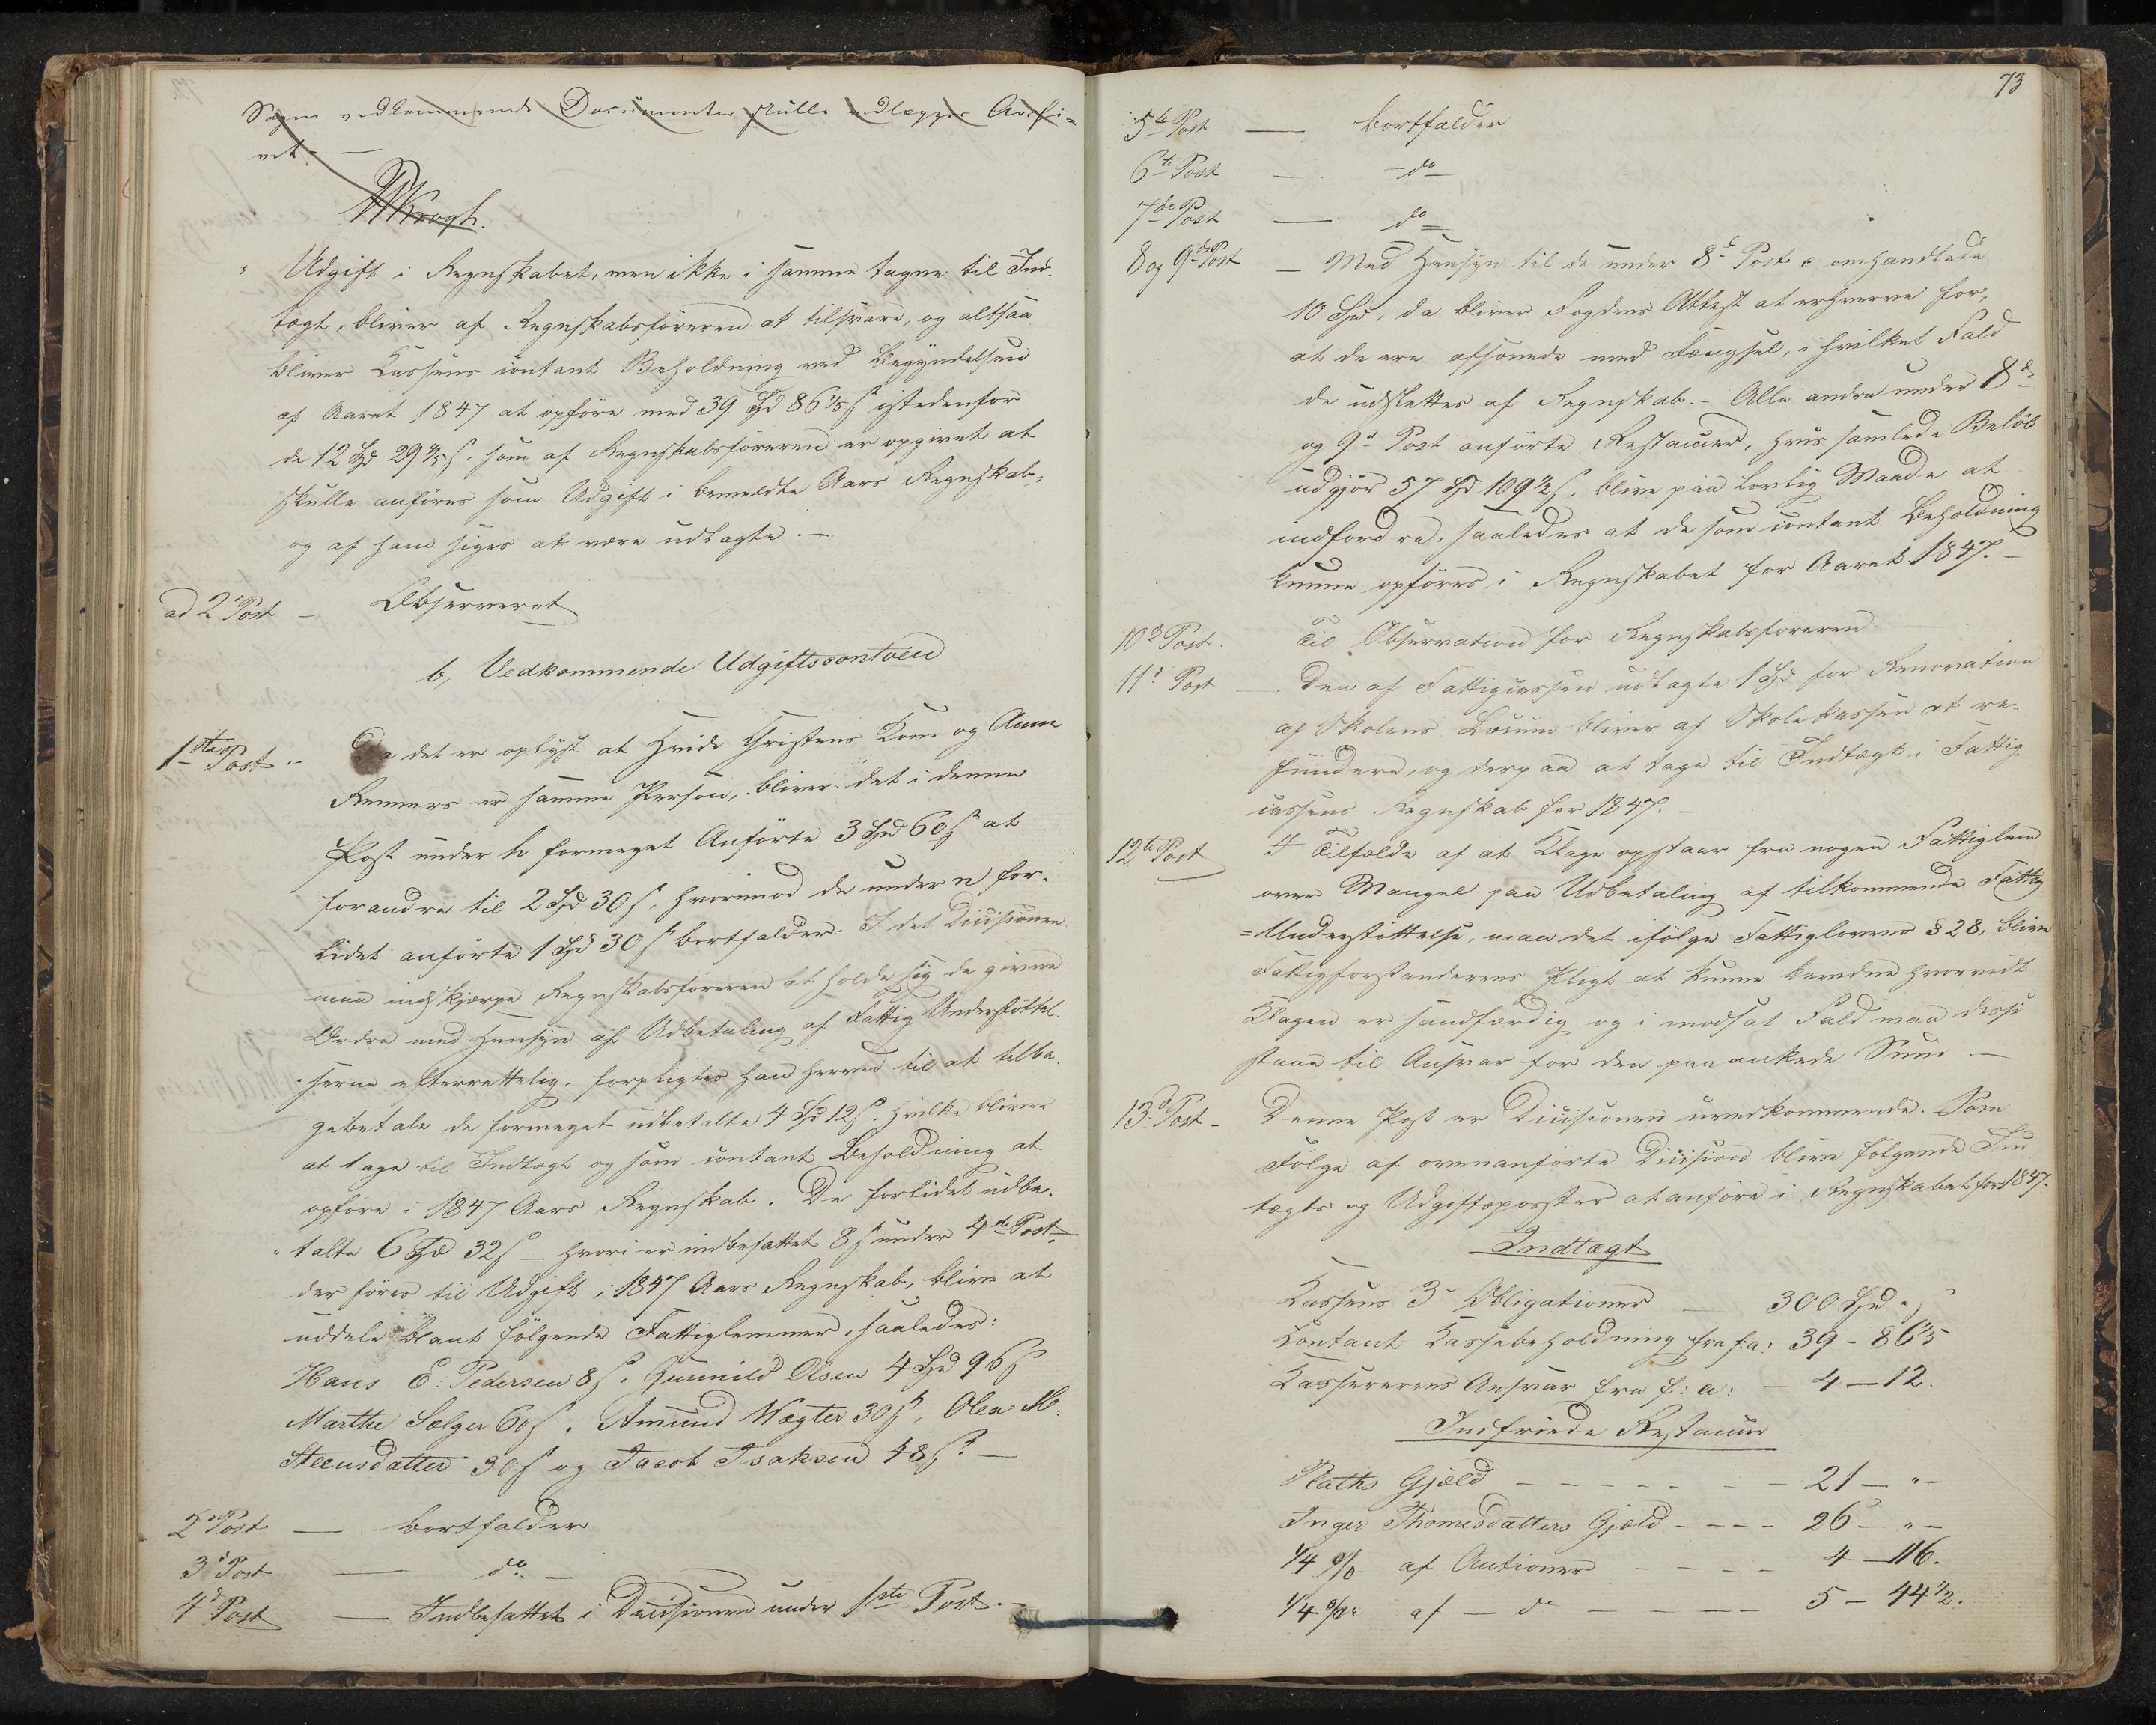 Sagen vedkommende Documenter skulle vedlægges Archi=
vet. —
Krogh.
" Udgift i Regnskabet, men ikke i samme tagne til Ind-
tægt, bliver af Regnskabsføreren at tilsvare, og altsaa
bliver Kassens contant Beholdning ved Begyndelsen
af Aaret 1847 at opføre med 39 Spd 86 1/5 s istedenfor
de 12 Spd 29 s. som af Regnskabsføreren er opgivet at
skulle anføres som Udgift i bemeldte Aars Regnskab,
og af ham siges at være udlagte. —
ad 2d Post — Observeret
b, Vedkommende Udgiftscontoen
1ste Post. - Da det er oplyst at Hvide Christens Kone og Anne
Remmers er samme Person, bliver det i denne
Post under h formeget Anførte 3 Spd 60 s at
forandre til 2 Spd 30 s, hvorimod de under n for-
lidet anførte 1 Spd 30 s bortfalder. I det Decisionen
maa indskjærpe Regnskabsføreren at holde sig de givne
Ordre med Hensyn af Udbetaling af Fattig Understøttel-
serne efterrettelig, forpligtes han herved til at tilba-
gebetale de formeget udbetalte 4 Spd 12 s. hvilke bliver
at tage til Indtægt og som contant Beholdning at
opføre i 1847 Aars Regnskab. De forlidet udbe-
" talte 6 Spd 32 s — hvori er indbefattet 8 s under 4de Post —
der føres til Udgift i 1847 Aars Regnskab, blive at
uddele blant følgende Fattiglemmer, saaledes:
Hans E: Pedersen 8 s. Gunnild Olsen 4 Spd 96 s
Marthe Sælger 60 s. Amund Vægter 30 s, Olea M:
Steensdatter 30 s og Jacob Isaksen 48 s. —
2d Post — bortfalder
3d Post — do —
4d Post — Indbefattet i Decisionen under 1ste Post. —
73
5te Post — bortfalder
6te Post — do —
7de Post — do
8 og 9de Post — Med Hensyn til de under 8de Post c omhandlede
10 Spd, da bliver Fogdens Attest at erhverve for,
at de ere afsonede med Fængsel, i hvilket Fald
de udslettes af Regnskab. - Alle andre under 8de
og 9de Post anførte Restancer, hvis samlede Beløb
udgjør 57 Spd 109 1/2 s. blive paa lovlig Maade at
indfordre, saaledes at de som contant Beholdning
kunne opføres i Regnskabet for Aaret 1847. —
10de Post. Til Observation for Regnskabsføreren.
11te Post — Den af Fattigcassen udlagte 1 Spd for Renovation
af Skolens Locum bliver af Skolekassen at re-
fundere, og derpaa at tage til Indtægt i Fattig
cassens Regnskab for 1847. —
12te Post I Tilfælde af at Klage opstaar fra nogen Fattiglem
over Mangel paa Udbetaling af tilkommende Fattig
= Understøttelse, maa det ifølge Fattiglovens § 28, blive
Fattigforstanderens Pligt at kunne bevidne hvorvidt
Klagen er sandfærdig og i modsat Fald maa disse
staae til Ansvar for den paaankede Sum. —
13de Post - Denne Post er Decisionen uvedkommende. Som
Følge af ovenanførte Decision blive følgende Ind
tægts og Udgiftsposter at anføre i Regnskabet for 1847.
Indtægt
Kassens 3 Obligationer — 300 Spd " s
Contant Kassebeholdning fra f: a: 39 - 86 1/5
Kassererens Ansvar fra f: a: — 4 — 12.
Indfriede Restancer
Raths Gjæld — — — — — 21 — " —
Inger Thomesdatters Gjæld — — — — 26 — " —
1/4 % af Auctioner — — — — 4 — 116.
1/4 % af — do — — — — 5 — 44 1/2.